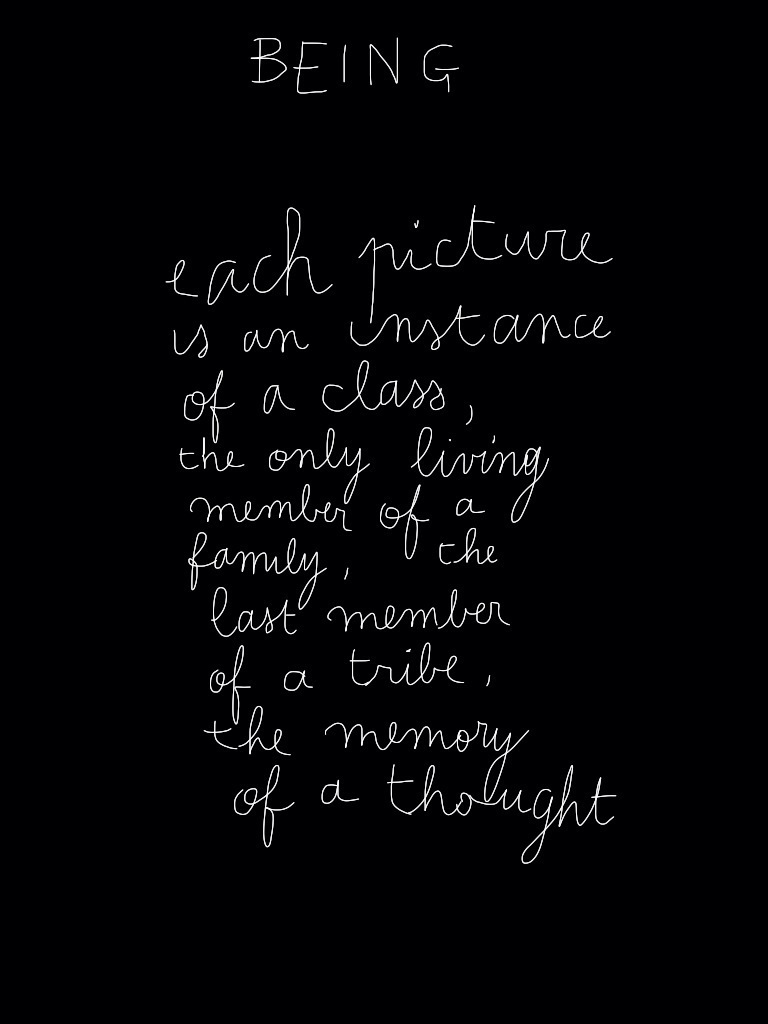 BEING
each picture
is an instance
of a class,
the only living
member of a
family, the
last member
of a tribe,
the memory
of a thought